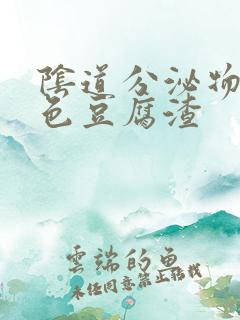 陰道分泌物
色豆腐渣
雲端的魚
未經同意禁止轉載